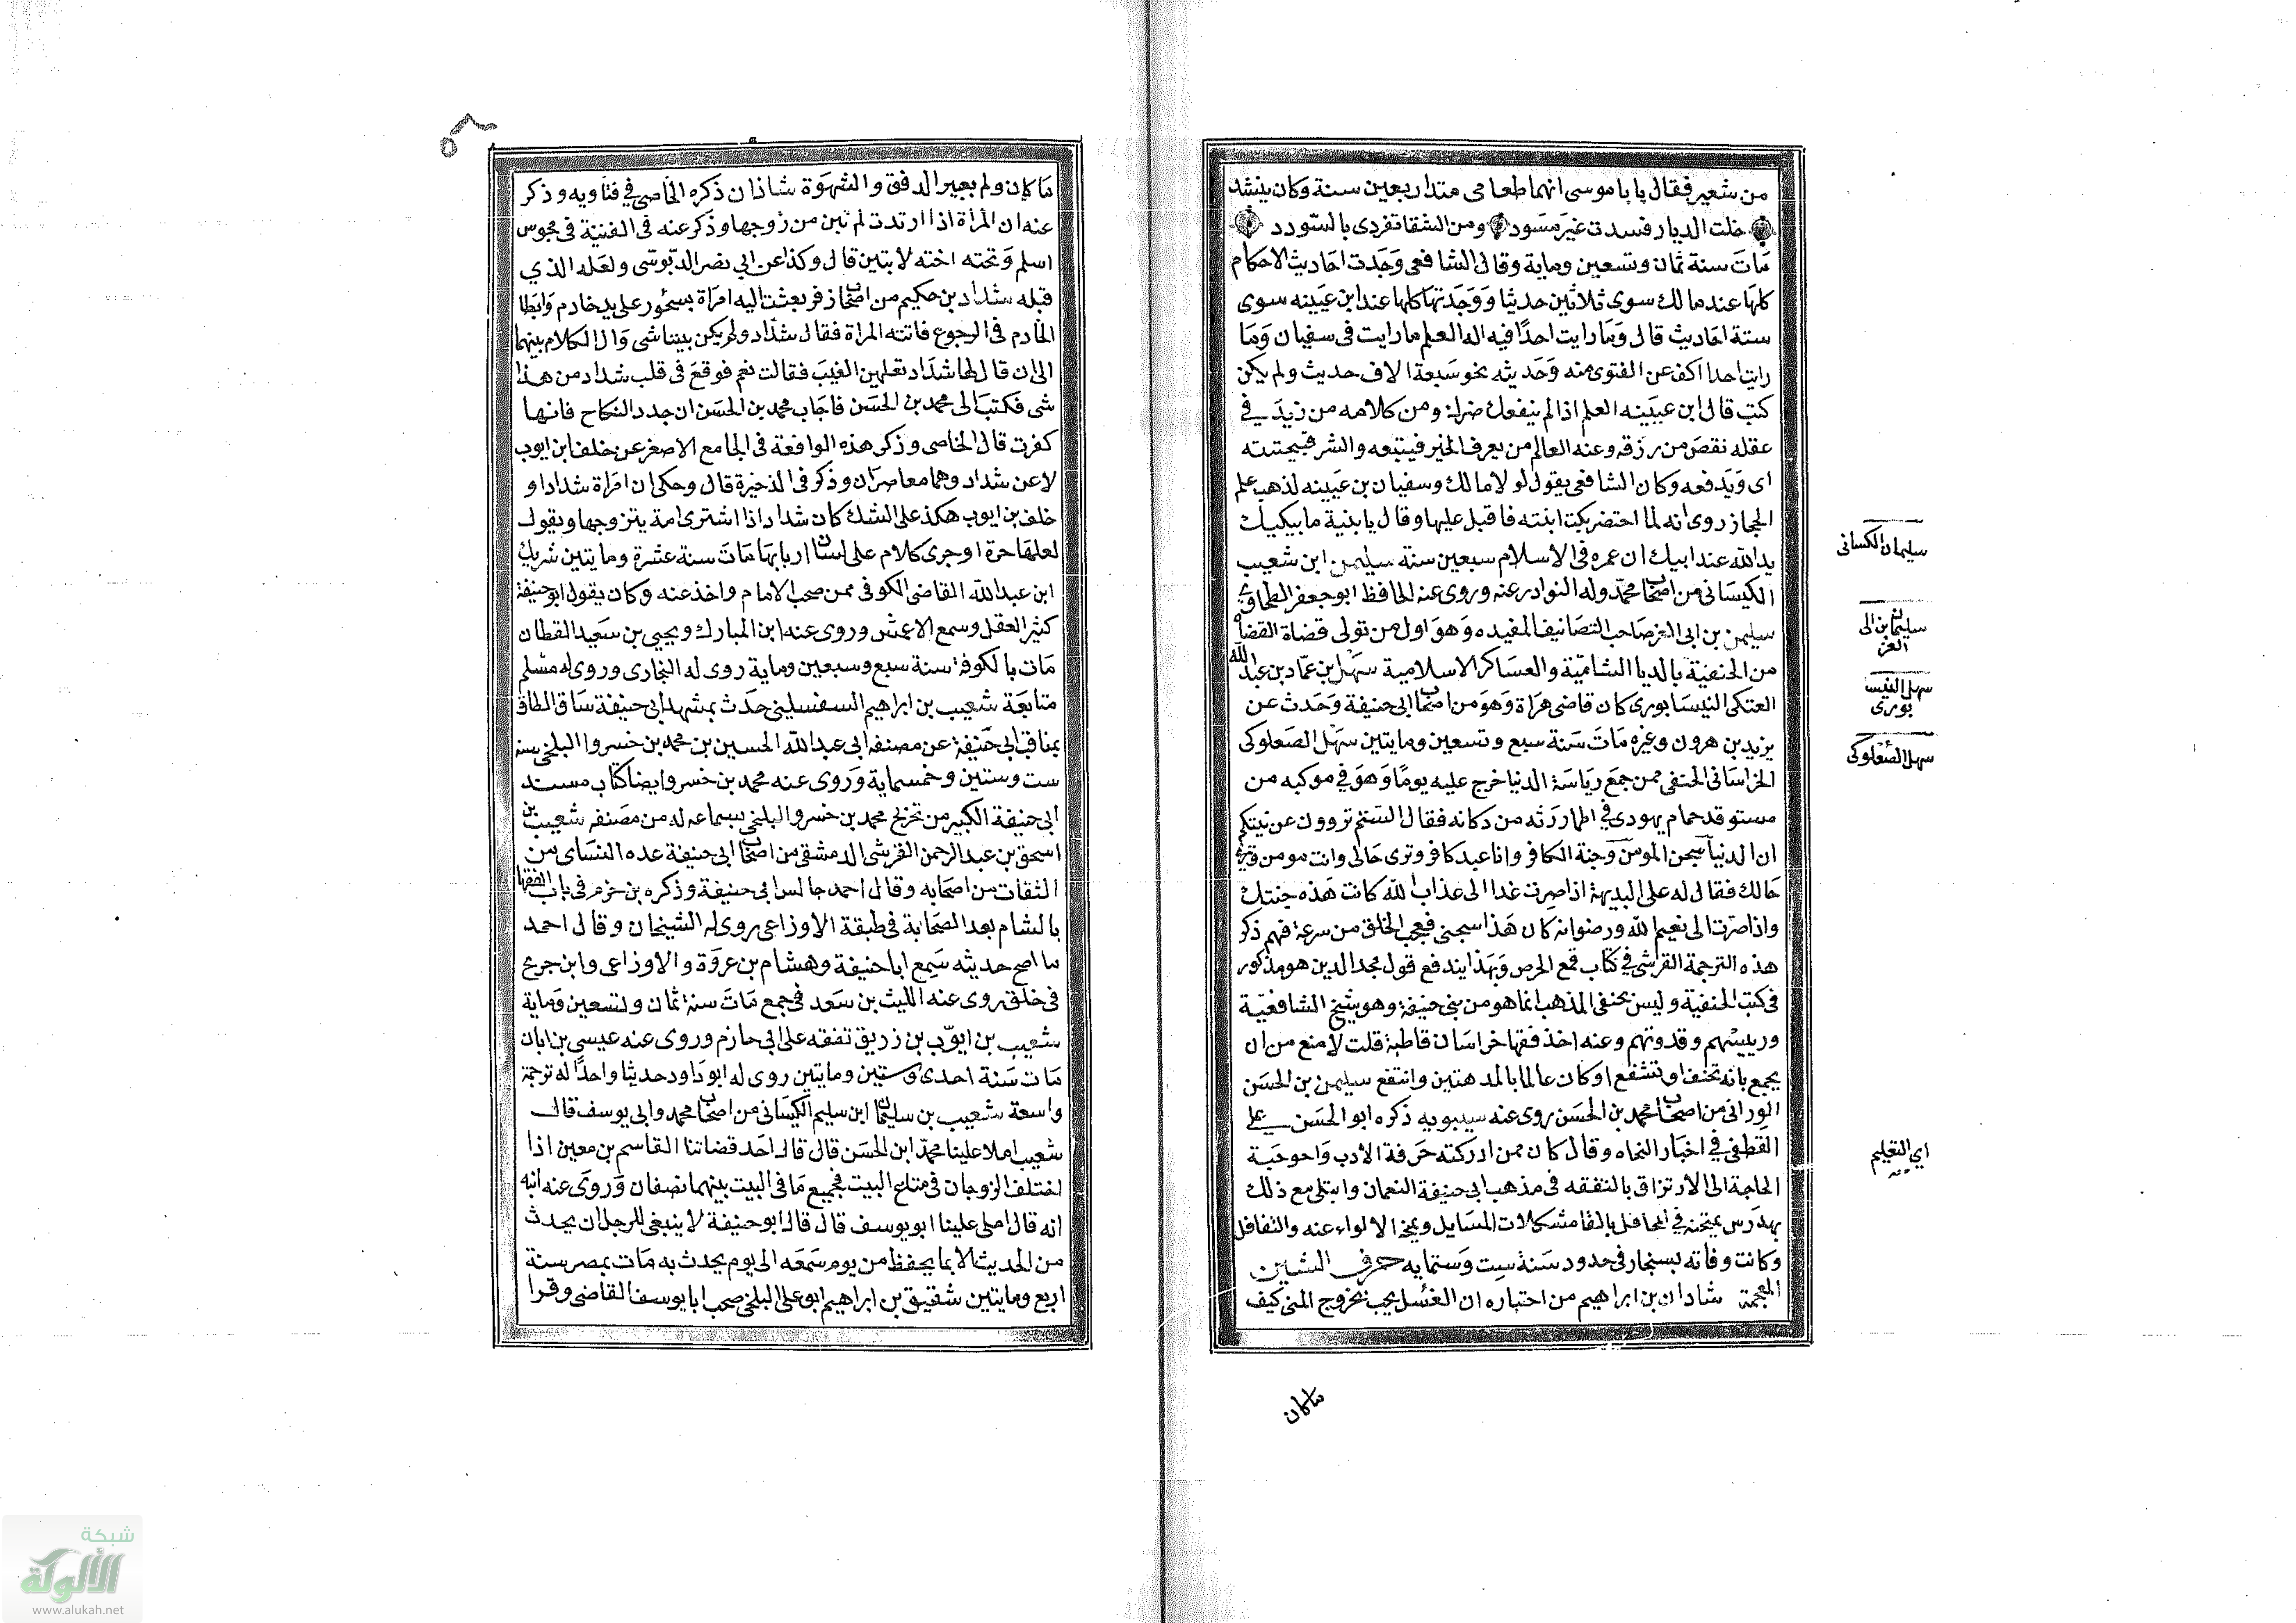 من شعير فقال يا با موسى انهما طعامى منذ اربعين سنة وكان ينشد
خلت الديار فسدت غير مسود ومن الشقا تفردى بالسودد
مات سنة ثمان وتسعين وماية وقال الشافعى وجدت احاديث الاحكام
كلها عند مالك سوى ثلاثين حديثا ووجدتها كلها عند ابن عيينه سوى
ستة احاديث قال وما رايت احدا فيه اله العلم ما رايت فى سفيان وما
رايت احدا اكف عن الفتوى منه وحديثه نحو سبعة الاف حديث ولم يكن
كتب قال ابن عيينه العلم اذا لم ينفعك ضرك ومن كلامه من زيد فى
عقله نقص من رزقه وعنه العالم من يعرف الخير فيتبعه والشر فيجتنبه
اى ويدفعه وكان الشافعى يقول لولا مالك وسفيان بن عيينه لذهب علم
الحجاز روى انه لما احتضر بكت ابنته فاقبل عليها وقال يا بنية ما يبكيك
يد الله عند ابيك ان عمره فى الاسلام سبعين سنة سليمن ابن شعيب
الكيسانى من اصحاب محمد وله النوادر عنه وروى عنه الحافظ ابو جعفر الطحاوى
سليمن بن ابى العز صاحب التصانيف المفيده وهو اول من تولى قضاة القضاة
من الحنفية بالديا الشامية والعساكر الاسلامية سهل بن عماد بن عبد الله
العتكى النيسابورى كان قاضى هراة وهو من اصحاب ابى حنيفة وحدث عن
يزيد بن هرون وغيره مات سنة سبع وتسعين ومايتين سهل الصعلوكى
الخراسانى الحنفى ممن جمع رياسة الدنيا خرج عليه يوما وهو فى موكبه من
مستوقد حمام يهودى فى اطمار رثه من دكانه فقال الستم تروون عن نبيكم
ان الدنيا سجن المومن وجنة الكافر وانا عبد كافر وترى حالى وانت مومن وترى
حالك فقال له على البديهة اذا صرت غدا الى عذاب الله كانت هذه جنتك
واذا صرت الى نعيم الله ورضوانه كان هذا سجنى فعجب الخلق من سرعة فهم ذكر
هذه الترجمة القرشى فى كتاب قمع الحرص وبهذا يندفع قول مجد الدين هو مذكور
فى كتب الحنفية وليس بحنفى المذهب انما هو من بنى حنيفة وهو شيخ الشافعية
ورييسهم وقدوتهم وعنه اخذ فقها خراسان قاطبة قلت لا منع من ان
يجمع بانه تحنف او تشفع او كان عالما بالمذهبين وانتفع سليمن بن الحسن
الورانى من اصحاب محمد بن الحسن روى عنه سيبويه ذكره ابو الحسن على
القطفى فى اخبار النحاه وقال كان ممن ادركته حرفة الادب واحوجته
الحاجة الى الارتزاق بالتفقه فى مذهب ابى حنيفة النعمان وابتلى مع ذلك
بمدرس يمتحنه فى المحافل بالقا مشكلات المسايل ونحو الالواء عنه والتغافل
وكانت وفاته بسنجار فى حدود سنة ست وستمايه حرف الشين
المعجمة شادان بن ابراهيم من اختياره ان الغسل يجب بخروج المنى كيف
سليمان الكسانى
سليمان بن ابى
العز
سهل النيسا
بورى
سهل الصعلوكى
اى التعليم
ما كان
٥٨
ما كان ولم يعير الدفق والشهوة شاذان ذكره الخاصى فى فتاويه وذكر
عنه ان المراة اذا ارتدت لم تبن من زوجها وذكر عنه فى القنية فى مجوس
اسلم وتحته اخته لا تبين قال وكذا عن ابى نصر الدبوسى ولعله الذي
قبله شداد بن حكيم من اصحاب زفر بعثت اليه امراة بسحور على يد خادم وابطا
الخادم فى الرجوع فاتته المراة فقال شداد ولم يكن بيننا شى وال الكلام بينهما
الى ان قال لها شداد تعلمين الغيب فقالت نعم فوقع فى قلب شداد من هذا
شى فكتب الى محمد بن الحسن فاجاب محمد بن الحسن ان جدد النكاح فانها
كفرت قال الخاصى وذكر هذه الواقعة فى الجامع الاصغر عن خلف ابن ايوب
لا عن شداد وهما معاصران وذكر فى الذخيرة قال وحكى ان امراة شداد او
خلف بن ايوب هكذ على الشك كان شداد اذا اشترى امة يتزوجها ويقول
لعلها حرة او جرى كلام على لسان اربابها مات سنة عشرة ومايتين شريك
ابن عبد الله القاضى الكوفى ممن صحب الامام واخذ عنه وكان يقول ابو حنيفة
كثير العقل وسمع الاعمش وروى عنه ابن المبارك ويحيى بن سعيد القطان
مات بالكوفة سنة سبع وسبعين وماية روى له البخارى وروى له مسلم
متابعة شعيب بن ابراهيم السفسلينى حدث بمشهد ابى حنيفة ساق الطاق
بمناقب ابى حنيفة عن مصنفه ابى عبد الله الحسين بن محمد بن خسرو البلخى سنة
ست وستين وخمسماية وروى عنه محمد بن خسرو ايضا كتاب مسند
ابى حنيفة الكبير من تخريج محمد بن خسرو البلخى بسماعه له من مصنفه شعيب بن
اسحق بن عبد الرحمن القرشى الدمشقى من اصحاب ابى حنيفة عده النساى من
الثقات من اصحابه وقال احمد جالس ابى حنيفة وذكره بن حزم فى باب الفقها
بالشام بعد الصحابة فى طبقة الاوزاعى روى له الشيخان وقال احمد
ما اصح حديثه سمع ابا حنيفة وهشام بن عروة والاوزاعى وابن جريج
فى خلق روى عنه الليث بن سعد فى جمع مات سنة ثمان وتسعين وماية
شعيب بن ايوب بن زريق تفقه على ابى حازم وروى عنه عيسى بن ابان
مات سنة احدى وستين ومايتين روى له ابو داود حديثا واحدا له ترجمة
واسعة شعيب بن سليمان ابن سليم الكيسانى من اصحاب محمد وابى يوسف قال
شعيب املا علينا محمد ابن الحسن قال قال احد قضاتنا القاسم بن معين اذا
اختلف الزوجان فى متاع البيت فجميع ما فى البيت بينهما نصفان وروى عنه ابنه
انه قال املى علينا ابو يوسف قال قال ابو حنيفة لا ينبغى للرجل ان يحدث
من الحديث الا بما يحفظ من يوم سمعه الى يوم يحدث به مات بمصر سنة
اربع ومايتين شقيق بن ابراهيم ابو على البلخى صحب ابا يوسف القاضى وقرا
شبكة
الألوكة
www.alukah.net